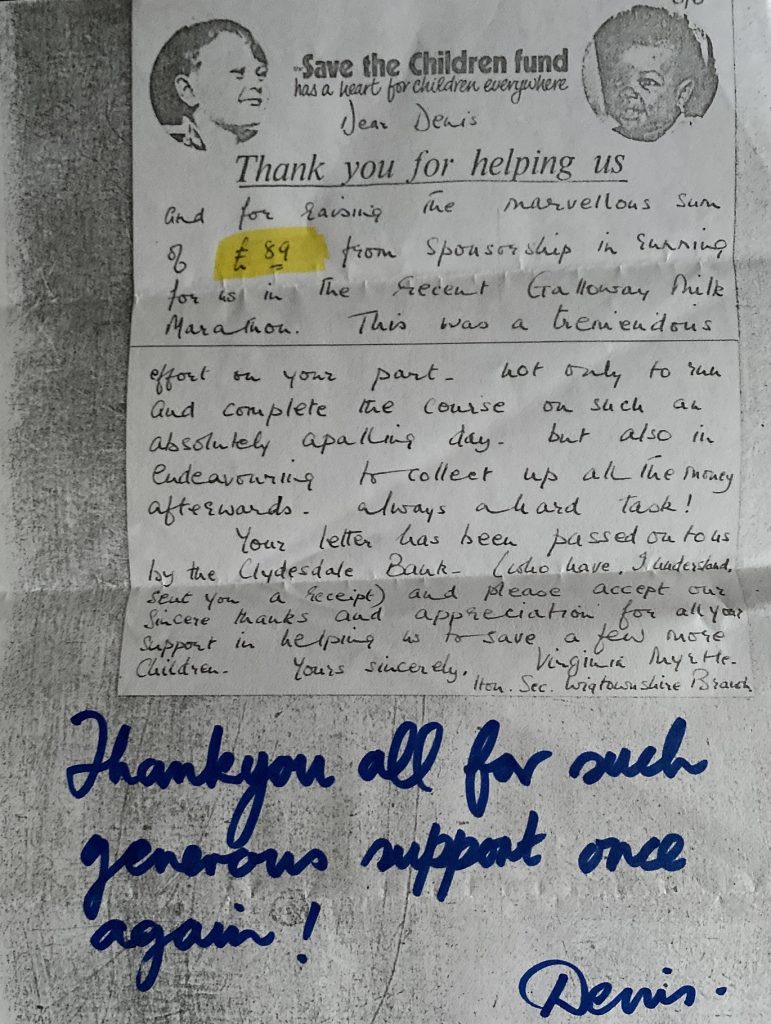 Save the Children fund
has a heart for children everywhere
Dear Denis
Thank you for helping us
and for raising the marvellous sum
of £89 from sponsorship in running
for us in the recent Galloway Milk
Marathon. This was a tremendous
effort on your part - not only to run
and complete the course on such an
absolutely apalling day - but also in
endeavouring to collect up all the money
afterwards - always a hard task!
Your letter has been passed on to us
by the Clydesdale Bank - (who have, I understand,
sent you a receipt) and please accept our
sincere thanks and appreciation for all your
support in helping us to save a few more
Children. Yours sincerely, Virginia Myrtle.
Hon. Sec. Wigtownshire Branch
Thankyou all for such
generous support once
again!
Denis.